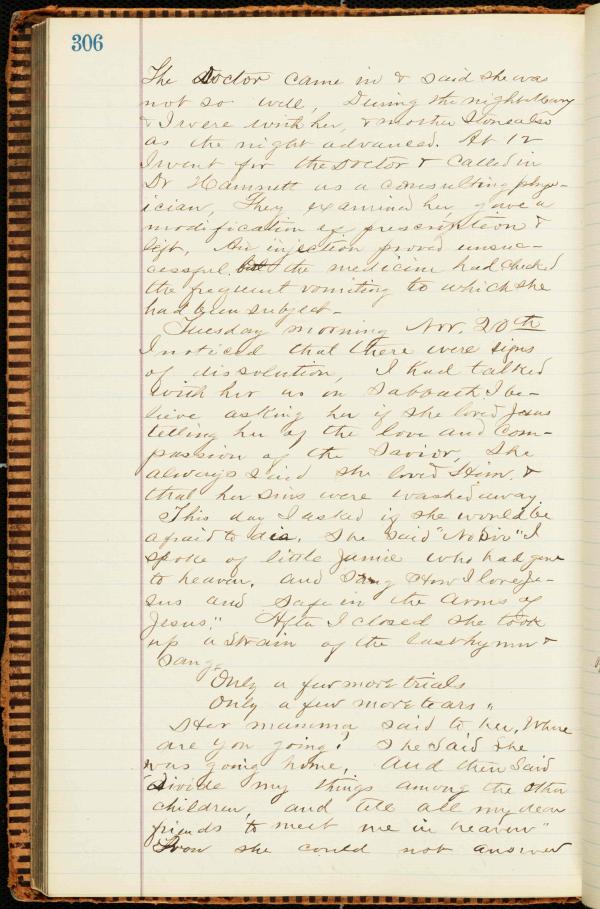 306
The Doctor came in & said she was
not so well, During the night Mary
& I were with her, & mother Stone also
as the night advanced. At 12
I went for the Doctor & called in
Dr Hamnett as a consulting phys-
ician, They examined her, gave a
modification of prescription &
left, An injection proved unsuc-
cessful, but the medicine had checked
the frequent vomiting to which she
had been subject -
Tuesday morning Nov. 20th
I noticed that there were signs
of dissolution, I had talked
with her as in Sabbath I be-
lieve asking her if she loved Jesus
telling her of the love and com-
passion of the Savior, She
always said she loved Him, &
that her sins were washed away.
This day I asked if she would be
afraid to die, She said "No Sir" I
spoke of little Jamie who had gone
to heaven, and sang How I love Je-
sus and Safe in the arms of
Jesus." After I closed she took
up a strain of the last hymn &
sang,
Only a few more trials
Only a few more tears "
Her mamma said to her, Where
are you going? She said she
was going home, and then said
"divide my things among the other
children, and tell all my dear
friends to meet me in heaven"
Soon she could not answer